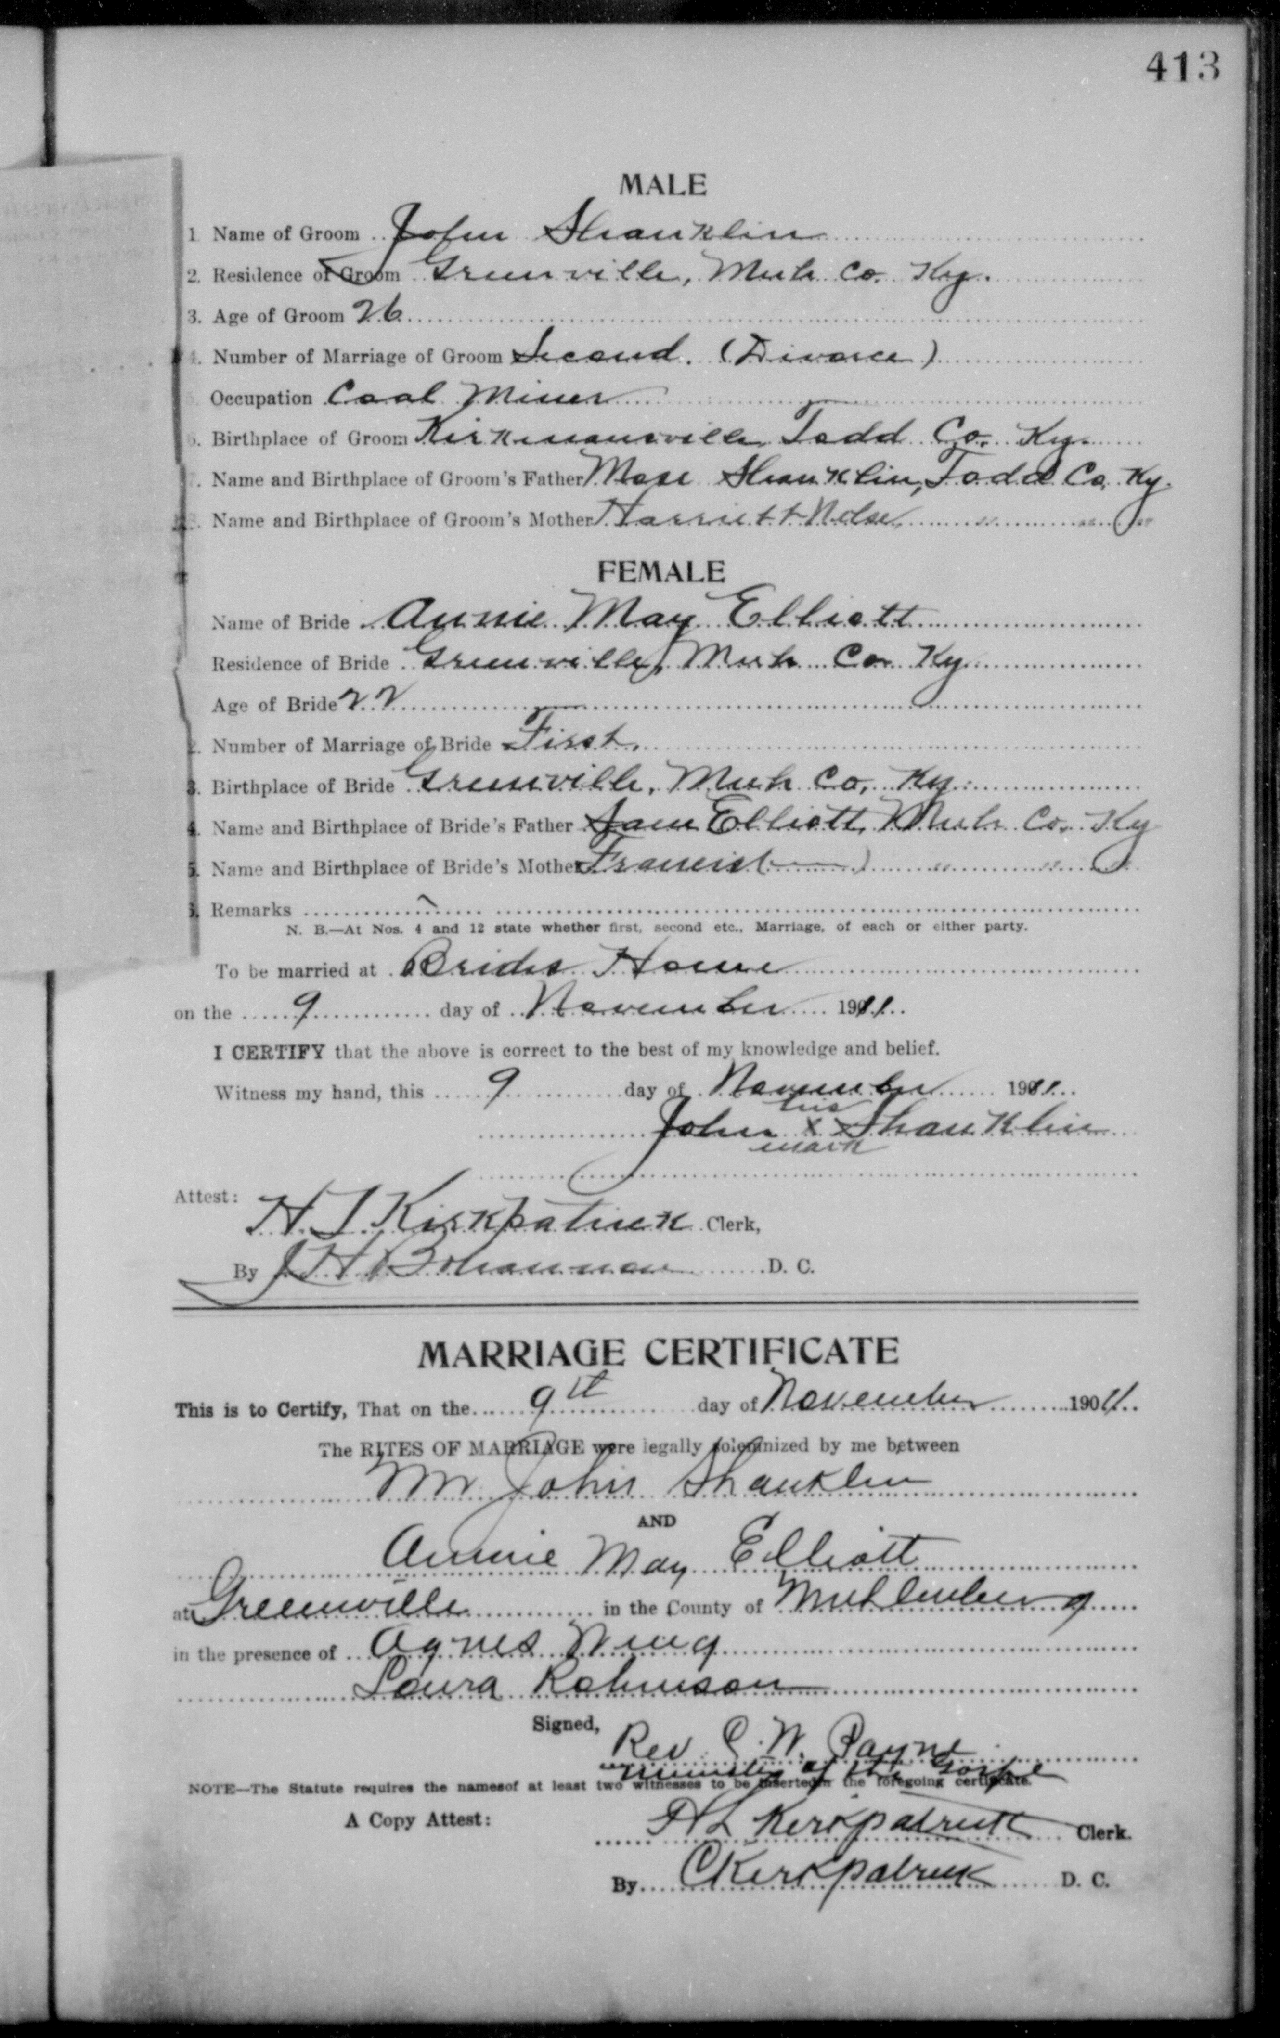 413
MALE
1 Name of Groom John Shanklin
2. Residence of Groom Greenville, Muh Co. Ky.
3. Age of Groom 26
4. Number of Marriage of Groom Second. (Divorce)
Occupation Coal Miner
6. Birthplace of Groom Kirkmansville, Todd Co. Ky.
7. Name and Birthplace of Groom's Father Mose Shanklin, Todd Co, Ky.
Name and Birthplace of Groom's Mother Harriett " " "
FEMALE
Name of Bride Annie May Elliott
Residence of Bride Greenville, Muh Co Ky
Age of Bride 22
2. Number of Marriage of Bride First.
3. Birthplace of Bride Greenville, Muh Co, Ky.
4. Name and Birthplace of Bride's Father Sam Elliott, Muh Co. Ky
5. Name and Birthplace of Bride's Mother " " "
6. Remarks
N. B.—At Nos. 4 and 12 state whether first, second etc., Marriage, of each or either party.
To be married at Brides Home
on the 9 day of November 1911
I CERTIFY that the above is correct to the best of my knowledge and belief.
Witness my hand, this 9 day of November 1911
his
John x Shanklin
mark
Attest:
H. L. Kirkpatrick Clerk,
By J H Bohannon D. C.
MARRIAGE CERTIFICATE
This is to Certify, That on the 9th day of November 1911
The RITES OF MARRIAGE were legally solemnized by me between
Mr John Shanklin
AND
Annie May Elliott
at Greenville in the County of Muhlenberg
in the presence of Agnes Wing
Laura Robinson
Signed,
Rev. C. W. Payne
minister of the Gospel
NOTE—The Statute requires the names of at least two witnesses to be inserted in the foregoing certificate.
A Copy Attest:
H L Kirkpatrick Clerk.
By C Kirkpatrick D. C.